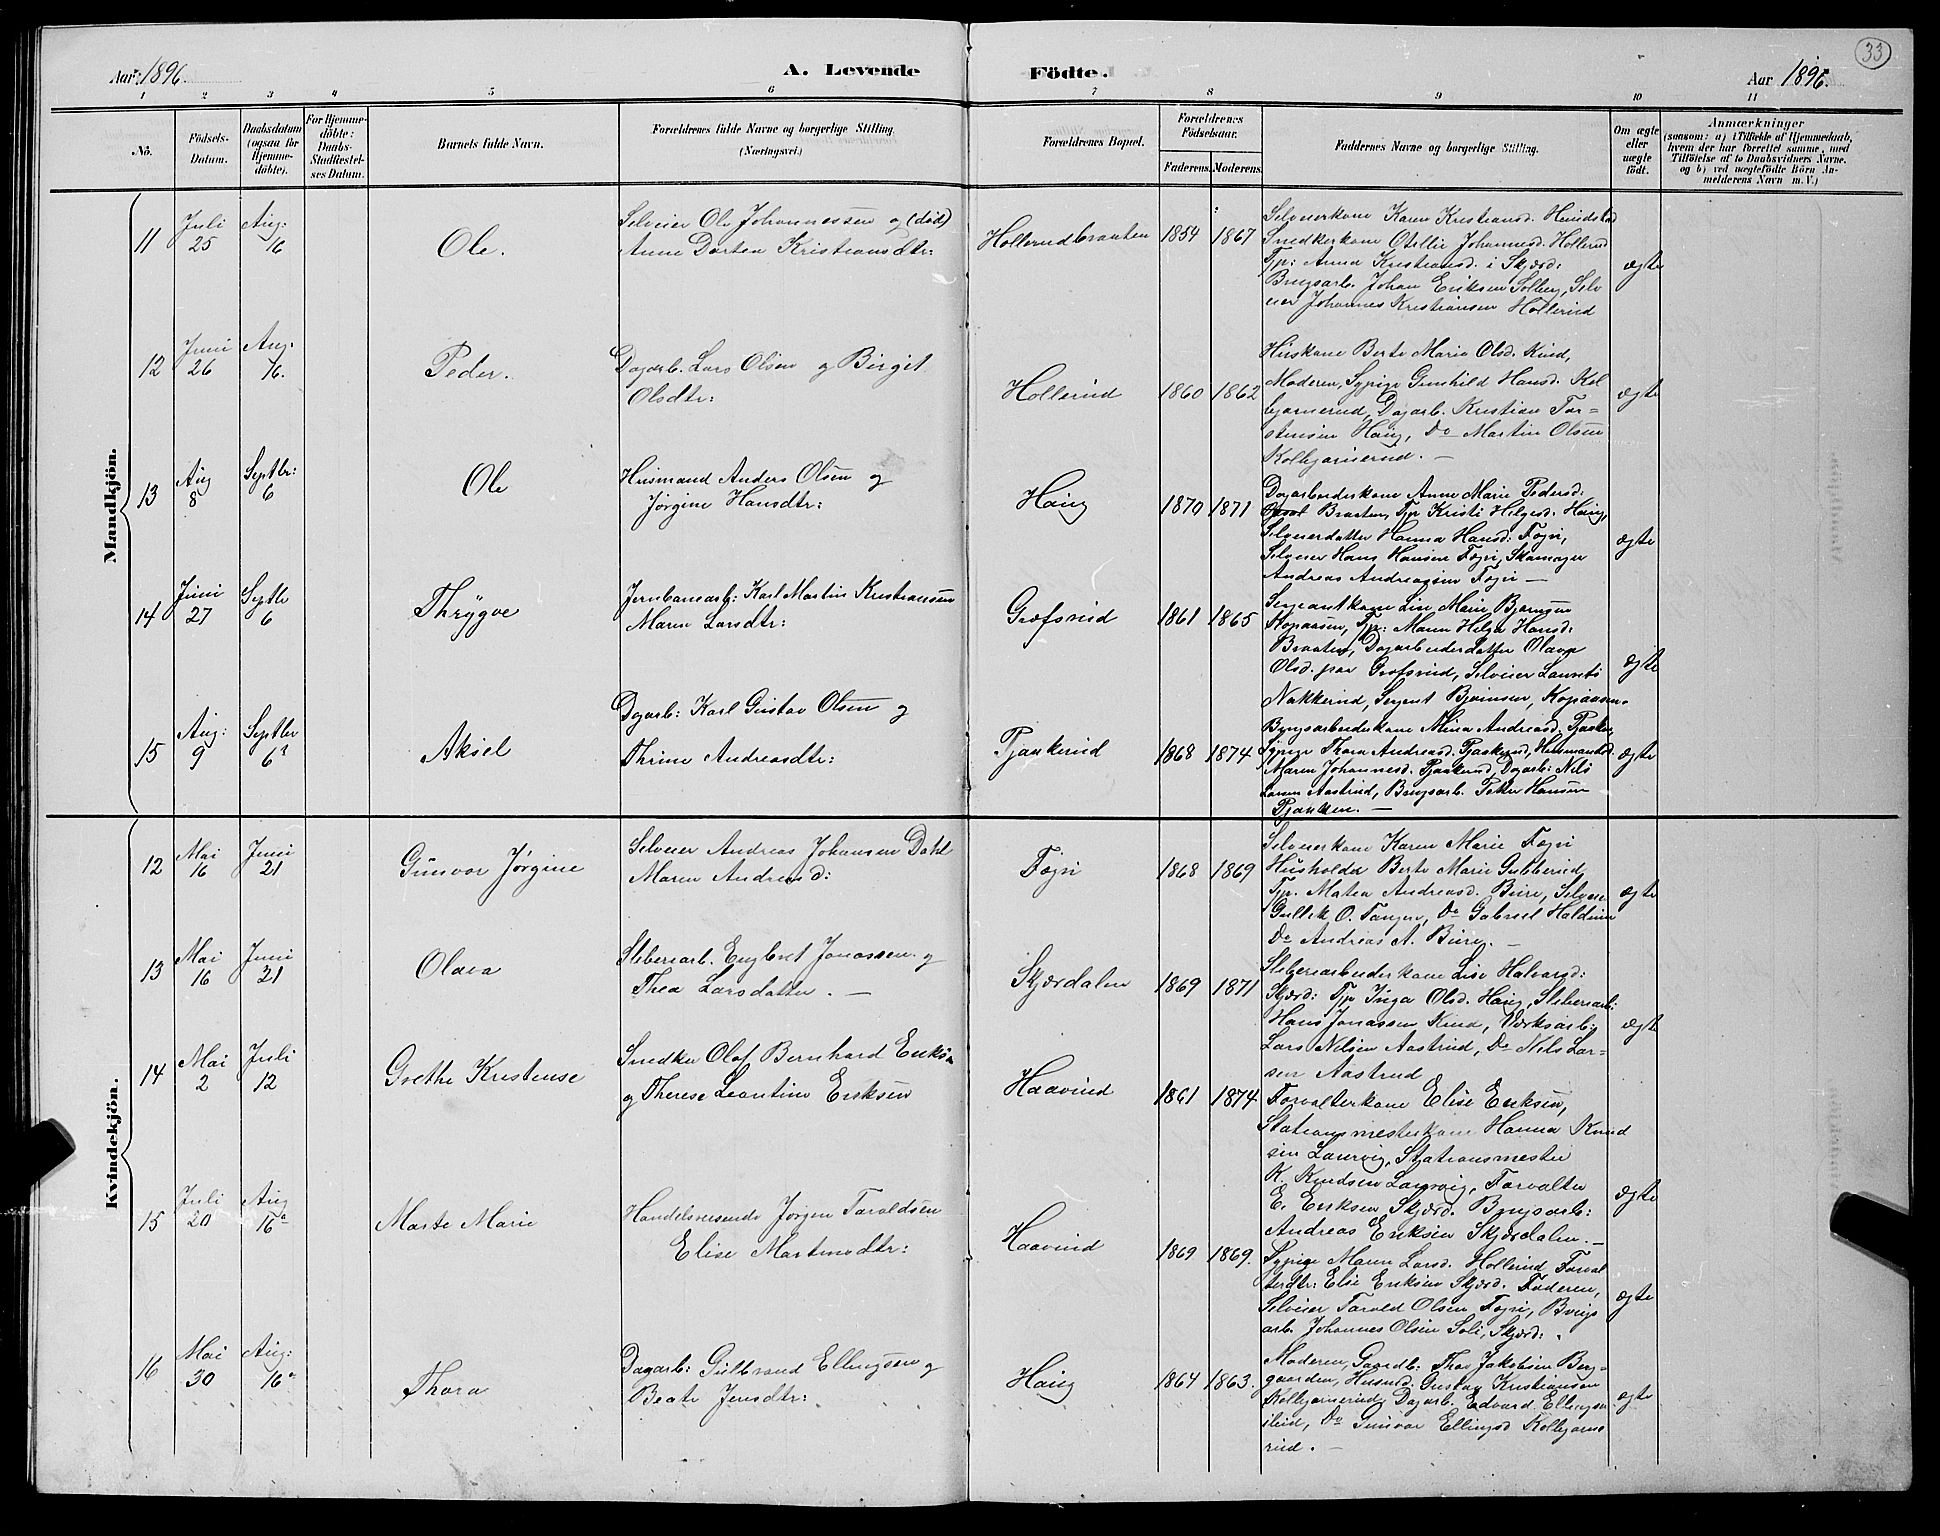 33
Aar 1896.
A. Levende Födte.
Aar 1896.
1 2 3 4 5 6 7 8 9 10 11
No.
Födsels-Datum.
Daabsdatum (ogsaa for Hjemme-döbte).
For Hjemme-döbte: Daabs-Stadfæstel-ses Datum.
Barnets fulde Navn.
Forældrenes fulde Navne og borgerlige Stilling. (Næringsvei.)
Forældrenes Bopæl.
Forældrenes Födselsaar.
Faderens. Moderens.
Faddernes Navne og borgerlige Stilling.
Om ægte eller uægte födt.
Anmærkninger
(saasom: a) i Tilfælde af Hjemmedaab, hvem der har forrettet samme, med Tilföielse af to Daabsvidners Navne, og b) ved uægtefödte Börn An-melderens Navn m. V.)
Mandkjön.
11 Juli 25 Aug: 16 Ole.
Selveier Ole Johannessen og (död)
Anne Dortea Kristiansdtr:
Hollerudbraaten 1854 1867
Selveierkone Karen Kristiansd. Hundstad
Snedkerkone Otellie Johannesd. Hollerud
Tjp: Anna Kristiansd. i Skjærd:
Brugsarb. Johan Eriksen Solberg, Selv
eier Johannes Kristiansen Hollerud
ægte
12 Juni 26 Aug. 16. Peder.
Dagarb. Lars Olsen og Birgit
Olsdtr:
Hollerud 1860 1862
Huskone Berte Marie Olsd. Rud,
Moderen, Sypige Gunhild Hansd. Kol
bjørnerud, Dagarb. Kristian Tor=
stensen Haug, Do Martin Olsen
Kolbjørnerud. —
ægte
13 Aug 8 Septbr: 6 Ole
Husmand Anders Olsen og
Jørgine Hansdtr:
Haug 1870 1871
Dagarbeiderkone Anne Marie Pedersd.
Braaten, Tjp Kristi Helgesd. Haug,
Selveierdatter Hanna Hansd: Fogn,
Selveier Hans Hansen Fogn, Skomager
Andreas Andreassen Fogn —
ægte
14 Juni 27 Septbr 6 Thrygve
Jernbanearb: Karl Martin Kristiansen
Maren Larsdtr:
Græfsrud 1861 1865
Sergeantkone Lise Marie Bjørnsen
Kopaasen, Tjp: Maren Helga Hansd:
Braaten, Dagarbeiderdatter Olava
Olsd. paa Græfsrud, Selveier Laurits
Nakkerud, Sergent Bjørnsen, Kopaasen.
ægte
15 Aug: 9 Septbr 6 Aksel
Dagarb: Karl Gustav Olsen og
Thrine Andreasdtr:
Pjaakerud 1868 1874
Brugsarbeiderkone Mina Andreasd. Pjaaken,
Sypige Thora Andreasd. Pjaakerud, Husmandsd.
Maren Johannesd. Pjaakerud, Dagarb: Nils
Larsen Aastrud, Brugsarb. Petter Hansen
Pjaaken. —
ægte
Kvindekjön.
12 Mai 16 Juni 21 Gunvor Jørgine
Selveier Andreas Johansen Dahl
Maren Andreasd:
Fogn 1868 1869
Selveierkone Karen Marie Fogn
Husholder Berte Marie Gubberud,
Tjp. Matea Andreasd. Bure, Selveier
Gullik O. Tangen, Do Gabriel Haldum
Do Andreas A. Bure. —
ægte
13 Mai 16 Juni 21 Olava
Sliberiarb. Engbret Jonassen og
Thea Larsdatter. —
Skjærdalen 1869 1871
Sliberiarbeiderkone Lise Halvorsd:
Skjærd: Tjp Inga Olsd. Haug, Sliberiarb:
Hans Jonassen Rud, Værksarb:
Lars Nilsen Aastrud, Do Nils Lar=
sen Aastrud
ægte
14 Mai 2 Juli 12 Grethe Kristense
Snedker Olaf Bernhard Eriksen
og Therese Leontine Eriksen
Haavind 1861 1874
Forvalterkone Elise Eriksen,
Stationsmesterkone Hanna Knud
sen Laurvig, Stationsmester
K. Knudsen Laurvig, Forvalter
E. Eriksen Skjærd. Brugsarb:
Andreas Eriksen Skjærdalen. —
ægte
15 Juli 20 Aug 16 Marte Marie
Handelsreisende Jørgen Taraldsen
Elise Martinsdtr:
Haavind 1869 1869.
Sypige Maren Larsd. Hollerud Forval
terdtr: Elise Eriksen Skjærd. Faderen,
Selveier Tarald Olsen Fogn, Brugs
arb. Johannes Olsen Soli, Skjærd:
ægte
16 Mai 30 Aug: 16 Thora
Dagarb: Gulbrand Ellingsen og
Beate Jensdtr:
Haug 1864 1863.
Moderen, Gaardb: Thor Jakobsen Berg=
gaarden, Husmd: Gustav Kristiansen
Kolbjørnerud, Dagarb. Edvard Ellingsen
Do Gunvor Ellingsd Kolbjørne
rud. —
ægte